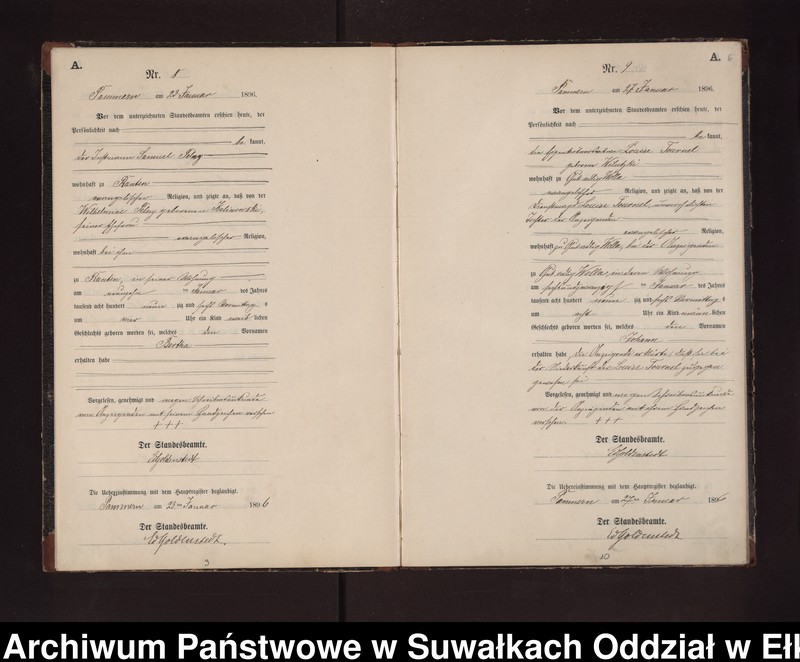 A.
Nr. 8
Pammern am 23 Januar 1896.
Vor dem unterzeichneten Standesbeamten erschien heute, der
Persönlichkeit nach
be kannt,
der Instmann Samuel
wohnhaft zu
evangelischer Religion, und zeigte an, daß von der
Wilhelmine geborenen
seiner Ehefrau
evangelischer Religion,
wohnhaft bei ihm
zu in seiner Wohnung
am ten Januar des Jahres
tausend acht hundert neun zig und sechs Vormittags
um vier Uhr ein Kind weiblichen
Geschlechts geboren worden sei, welches den Vornamen
Bertha
erhalten habe
Vorgelesen, genehmigt und wegen Schreibensunkunde
vom Anzeigenden mit seinem Handzeichen versehen
+++
Der Standesbeamte.
EdGoldenstedt
Die Uebereinstimmung mit dem Hauptregister beglaubigt.
Pammern am 23ten Januar 1896
Der Standesbeamte.
EdGoldenstedt.
3
A.
6
Nr. 9
Pammern am 27 Januar 1896.
Vor dem unterzeichneten Standesbeamten erschien heute, der
Persönlichkeit nach
be kannt,
die Louise
geborene
wohnhaft zu Gut adlig Wolla
evangelischer Religion, und zeigte an, daß von der
Louise unverehelichten
Tochter der Anzeigenden
evangelischer Religion,
wohnhaft zu Gut adlig Wolla, bei der Anzeigenden
zu Gut adlig Wolla, in deren Wohnung
am ten Januar des Jahres
tausend acht hundert neun zig und sechs Vormittags
um acht Uhr ein Kind männlichen
Geschlechts geboren worden sei, welches den Vornamen
Johann
erhalten habe. Die Anzeigende erklärte, daß sie bei
der Niederkunft der Louise zugegen
gewesen sei
Vorgelesen, genehmigt und wegen Schreibensunkunde
von der Anzeigenden mit ihrem Handzeichen
versehen +++
Der Standesbeamte.
EdGoldenstedt
Die Uebereinstimmung mit dem Hauptregister beglaubigt.
Pammern am 27ten Januar 1896
Der Standesbeamte.
EdGoldenstedt
10
Archiwum Państwowe w Suwałkach Oddział w Ełk